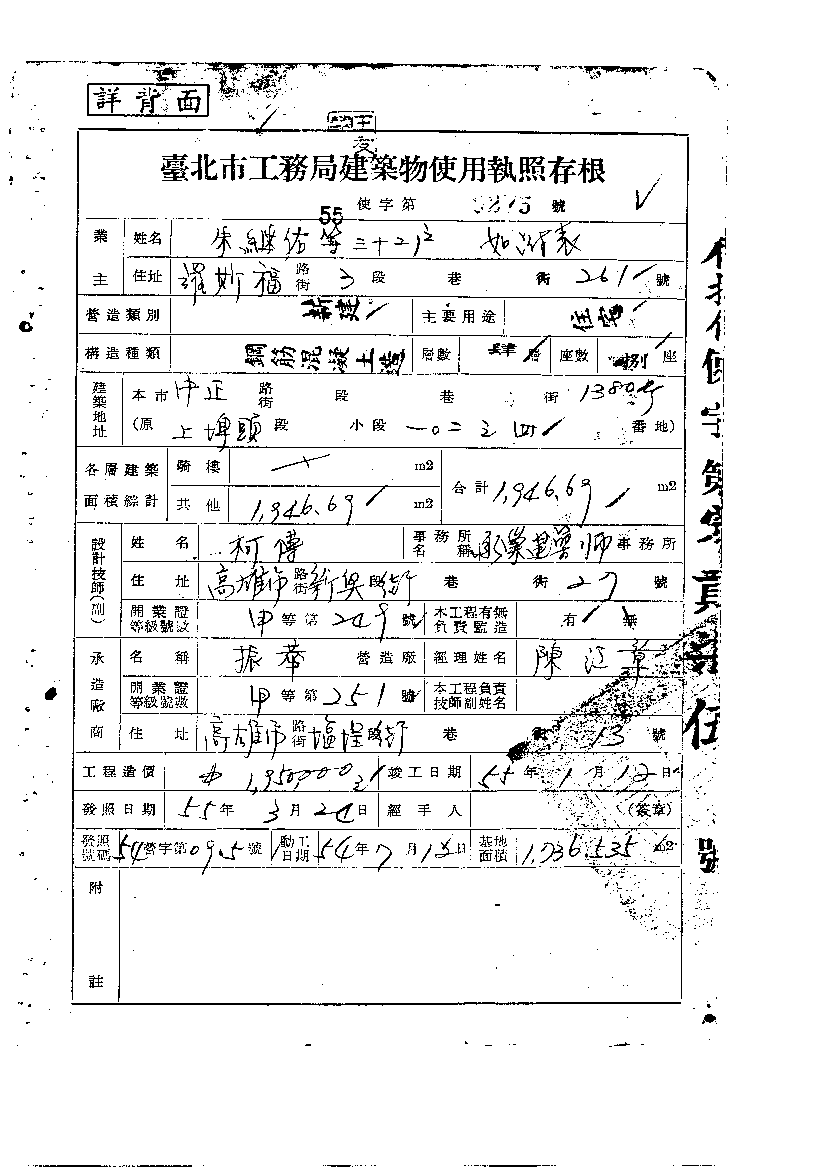 詳背面
臺北市工務局建築物使用執照存根
55 使字第 號
業主 姓名 朱繼佑等三十二戶 如附表
住址 羅斯福 路街 3 段 巷 街 261 號
營造類別 新建 主要用途 住宅
構造種類 鋼筋混凝土造 層數 肆 層 座數 捌 座
建築地址 本市 中正 路街 段 巷 街 138
(原 上埤頭 段 小段 一〇二之四 番地)
各層建築面積綜計 騎樓 m2 合計 1,946.69 m2
其他 1,946.69 m2
設計技師(副) 姓名 柯傳 事務所名稱 建築師 事務所
住址 高雄市 路街 新興 段 巷 街 27 號
開業證等級號數 甲 等第 249 號 本工程有無負責監造 有 無
承造廠商 名稱 振華 營造廠 經理姓名 陳江章
開業證等級號數 甲 等第 251 號 本工程負責技師副姓名
住址 高雄市 路街 塩埕 巷 街 13 號
工程造價 1,950,000 竣工日期 55 年 1 月 12 日
發照日期 55 年 3 月 24 日 經手人 (簽章)
發照號碼 54 營字第 0915 號 動工日期 54 年 7 月 15 日 基地面積 1,736.535 m2
附註
號